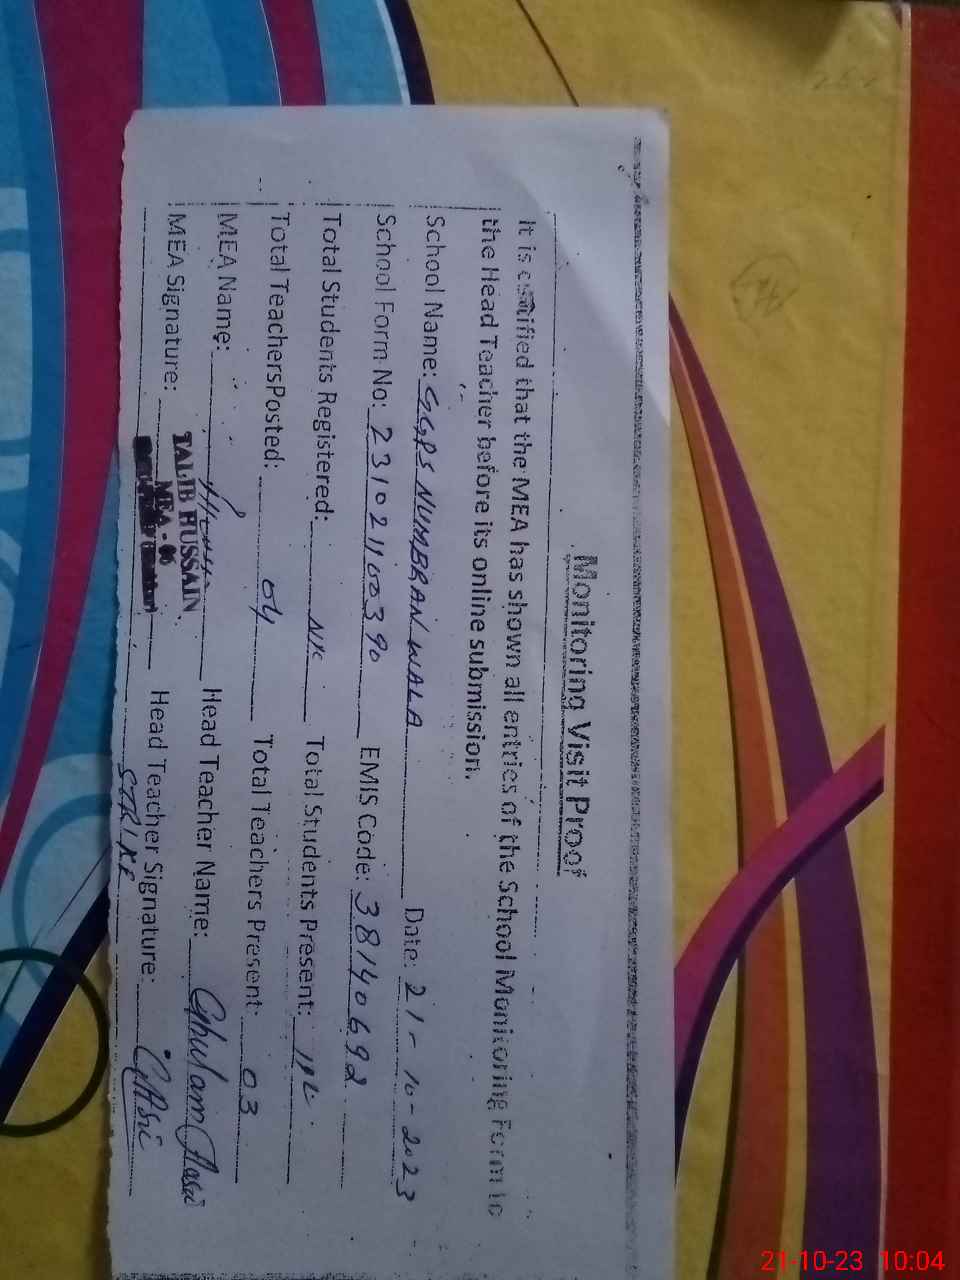 Monitoring Visit Proof
It is certified that the MEA has shown all entries of the School Monitoring Form to
the Head Teacher before its online submission.
School Name: GGPS NUMBRAN WALA Date: 21-10-2023
School Form No: 231021100390 EMIS Code: 38140692
Total Students Registered: Total Students Present:
Total TeachersPosted: 04 Total Teachers Present: 03
MEA Name: Head Teacher Name: Ghulam
MEA Signature: Head Teacher Signature:
TALIB HUSSAIN
MEA - 06
STRIKE
21-10-23 10:04